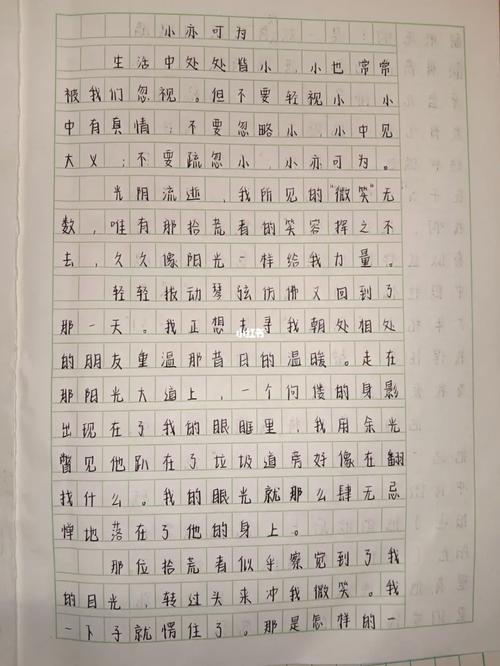 小亦可为
生活中处处皆小，小也常常
被我们忽视。但不要轻视小，小
中有真情；不要忽略小，小中见
大义；不要疏忽小，小亦可为。
光阴流逝，我所见的“微笑”无
数，唯有那拾荒者的笑容挥之不
去，久久像阳光一样给我力量。
轻轻拨动琴弦仿佛又回到了
那一天。我正想去寻我朝处相处
的朋友重温那昔日的温暖。走在
那阳光大道上，一个佝偻的身影
出现在了我的眼眶里，我用余光
瞥见他趴在了垃圾道旁好像在翻
找什么。我的眼光就那么肆无忌
惮地落在了他的身上。
那位拾荒者似乎察觉到了我
的目光，转过头来冲我微笑。我
一下子就愣住了。那是怎样的一
小红书